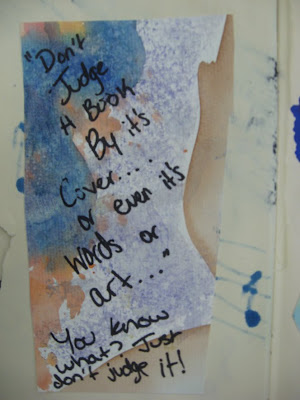 "Don't
Judge
A Book
By it's
Cover....
or even it's
words or
art..."
You know
what? Just
don't judge it!